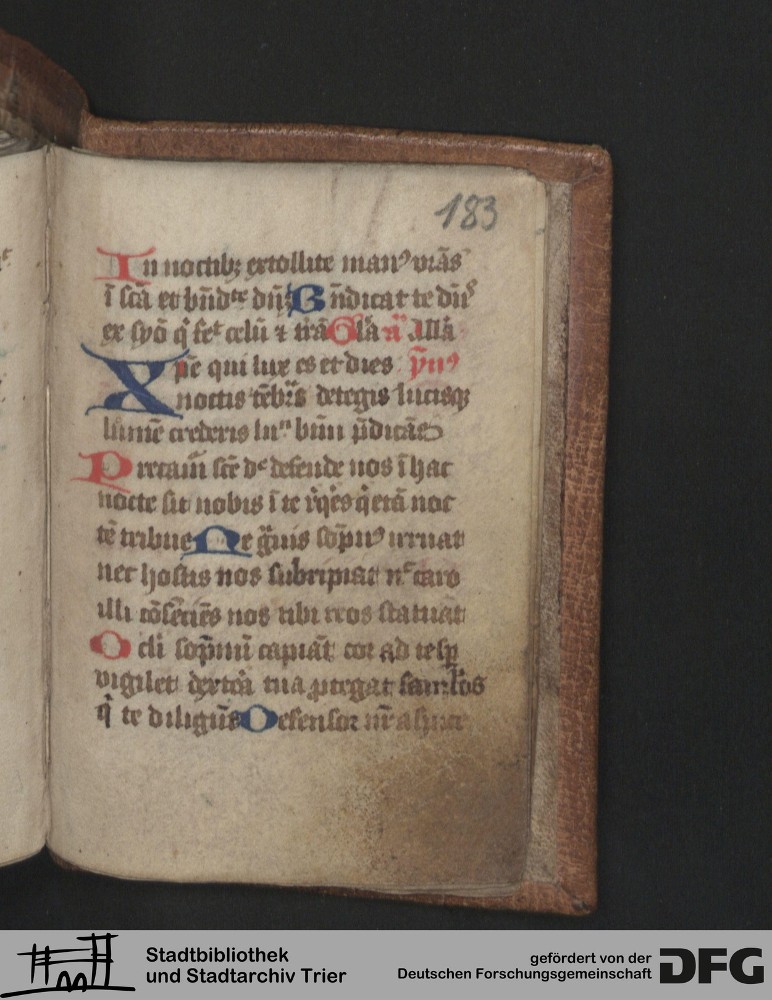 183
In noctibꝫ extollite manꝰ vr̄as
ī sc̄a et bn̄dͨte dn̄ꝫ Bn̄dicat te dn̄s
ex syō qͥ fecͭ celū ⁊ tr̄ā Gl̄a aͣ All̄a
Xpē qui lux es et dies ymꝰ
noctis tēbͣs detegis lucisqꝫ
lumē crederis lum̄ bt̄m p̄dicās
Precam̄ sc̄e dn̄e defende nos ī hac
nocte sit nobis ī te rͣqͥes qͥetā noc
tē tribue Ne gͣuis sōpnꝰ irruat
nec hostis nos subripiat nͨ caro
illi cōsēciēs nos tibi reos statuat
Oclī sop̄nū capiāt cor ad te sꝑ
vigilet dexterā tua ꝓtegat famlos
qͥ te diligūt Defensor nr̄ aspice
Stadtbibliothek
und Stadtarchiv Trier
gefördert von der
Deutschen Forschungsgemeinschaft
DFG